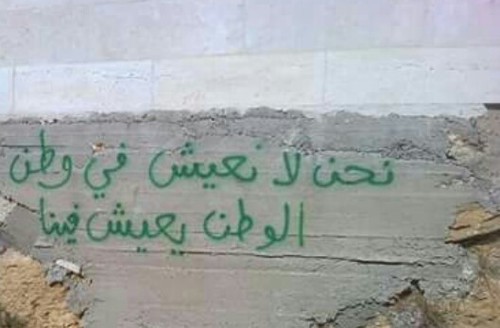 نحن لا نعيش في وطن
الوطن يعيش فينا